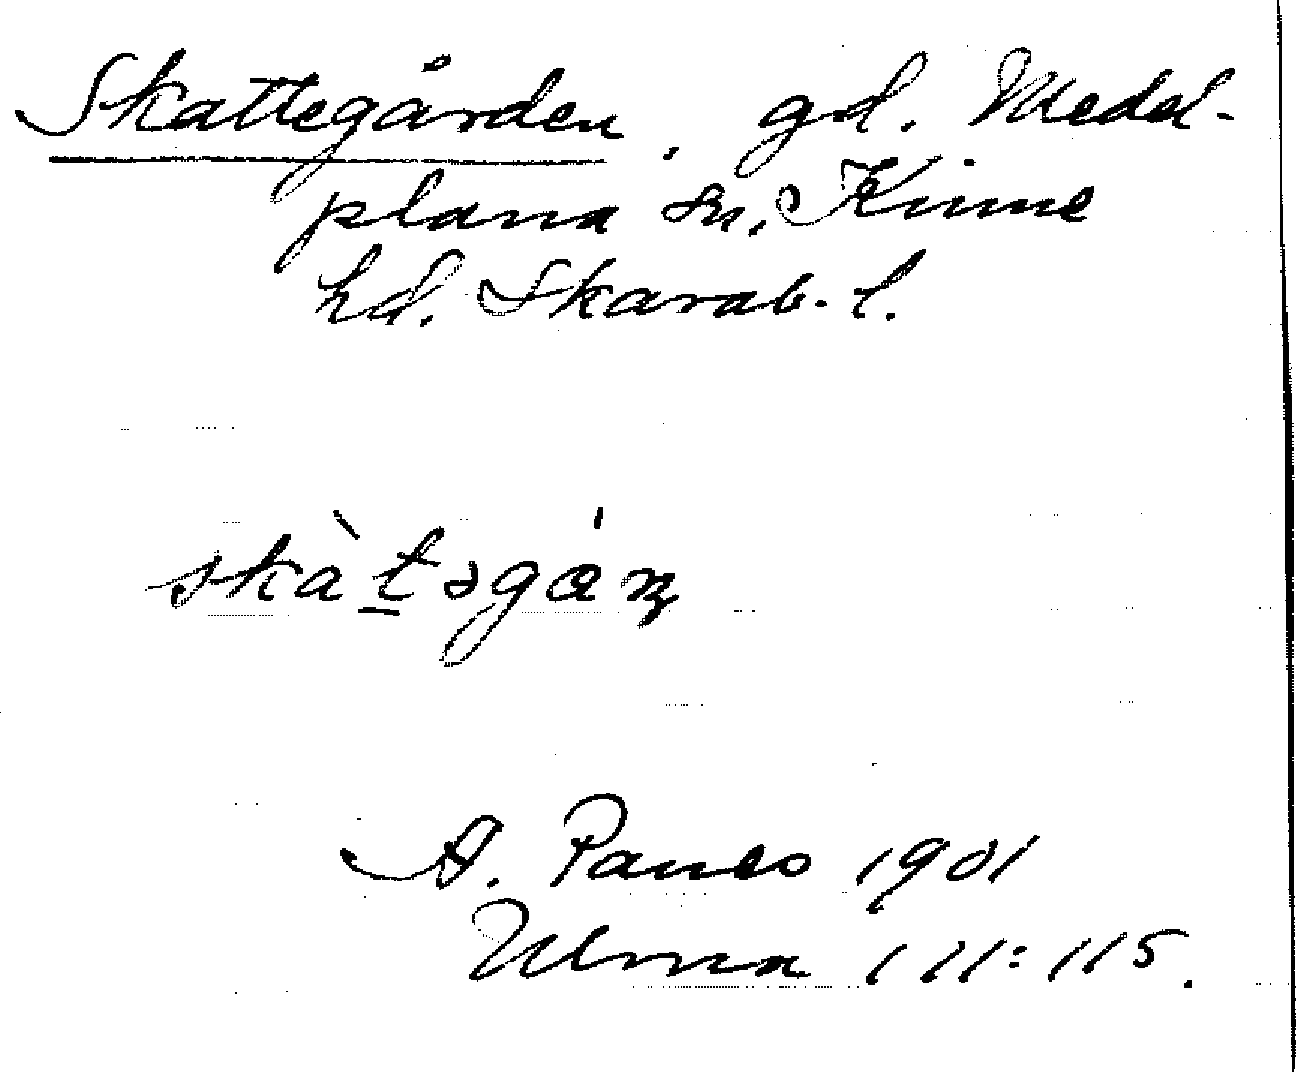 Skattegården, gd. Medel-
plana sn. Kinne
hd. Skarab. l.
skàt̲əgɑ́ɳ
A. 1901
Ulma 111:115.